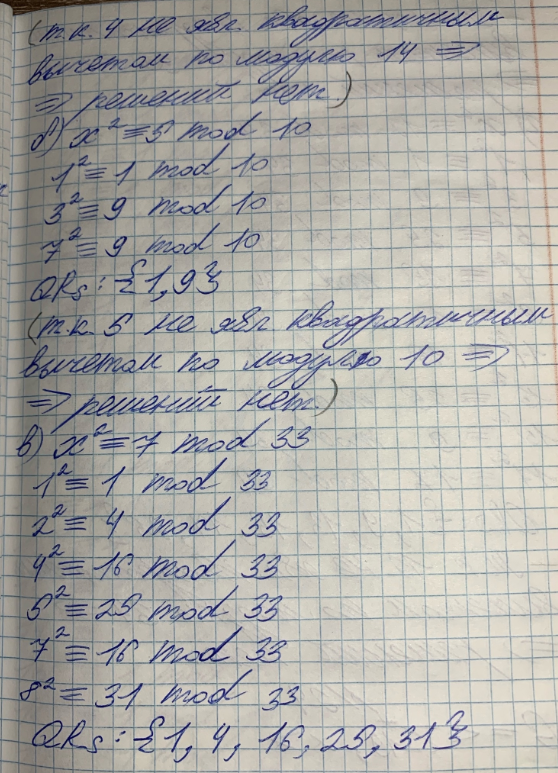 (т.к. 4 не явл. квадратичным
вычетом по модулю 14 =>
=> решений нет)
б) x² ≡ 5 mod 10
1² ≡ 1 mod 10
3² ≡ 9 mod 10
7² ≡ 9 mod 10
QRs: {1, 9}
(т.к. 5 не явл квадратичным
вычетом по модулю 10 =>
=> решений нет.)
в) x² ≡ 7 mod 33
1² ≡ 1 mod 33
2² ≡ 4 mod 33
4² ≡ 16 mod 33
5² ≡ 25 mod 33
7² ≡ 16 mod 33
8² ≡ 31 mod 33
QRs: {1, 4, 16, 25, 31}